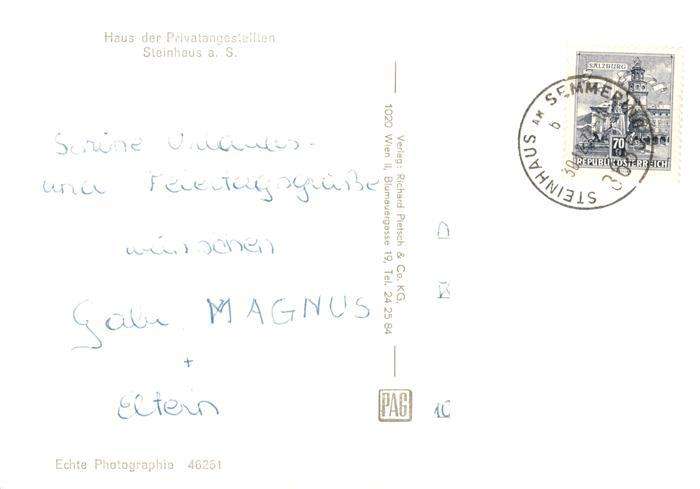 Haus der Privatangestellten
Steinhaus a. S.
Schöne Urlaubs-
und Feiertagsgrüße
wünschen
Gabi MAGNUS
+
Eltern
Echte Photographie 46251
Verlag: Richard Pietsch & Co. KG.
1020 Wien II, Blumauergasse 19, Tel. 24 25 84
PAG
SALZBURG
70
REPUBLIK ÖSTERREICH
STEINHAUS AM SEMMERING
b
10